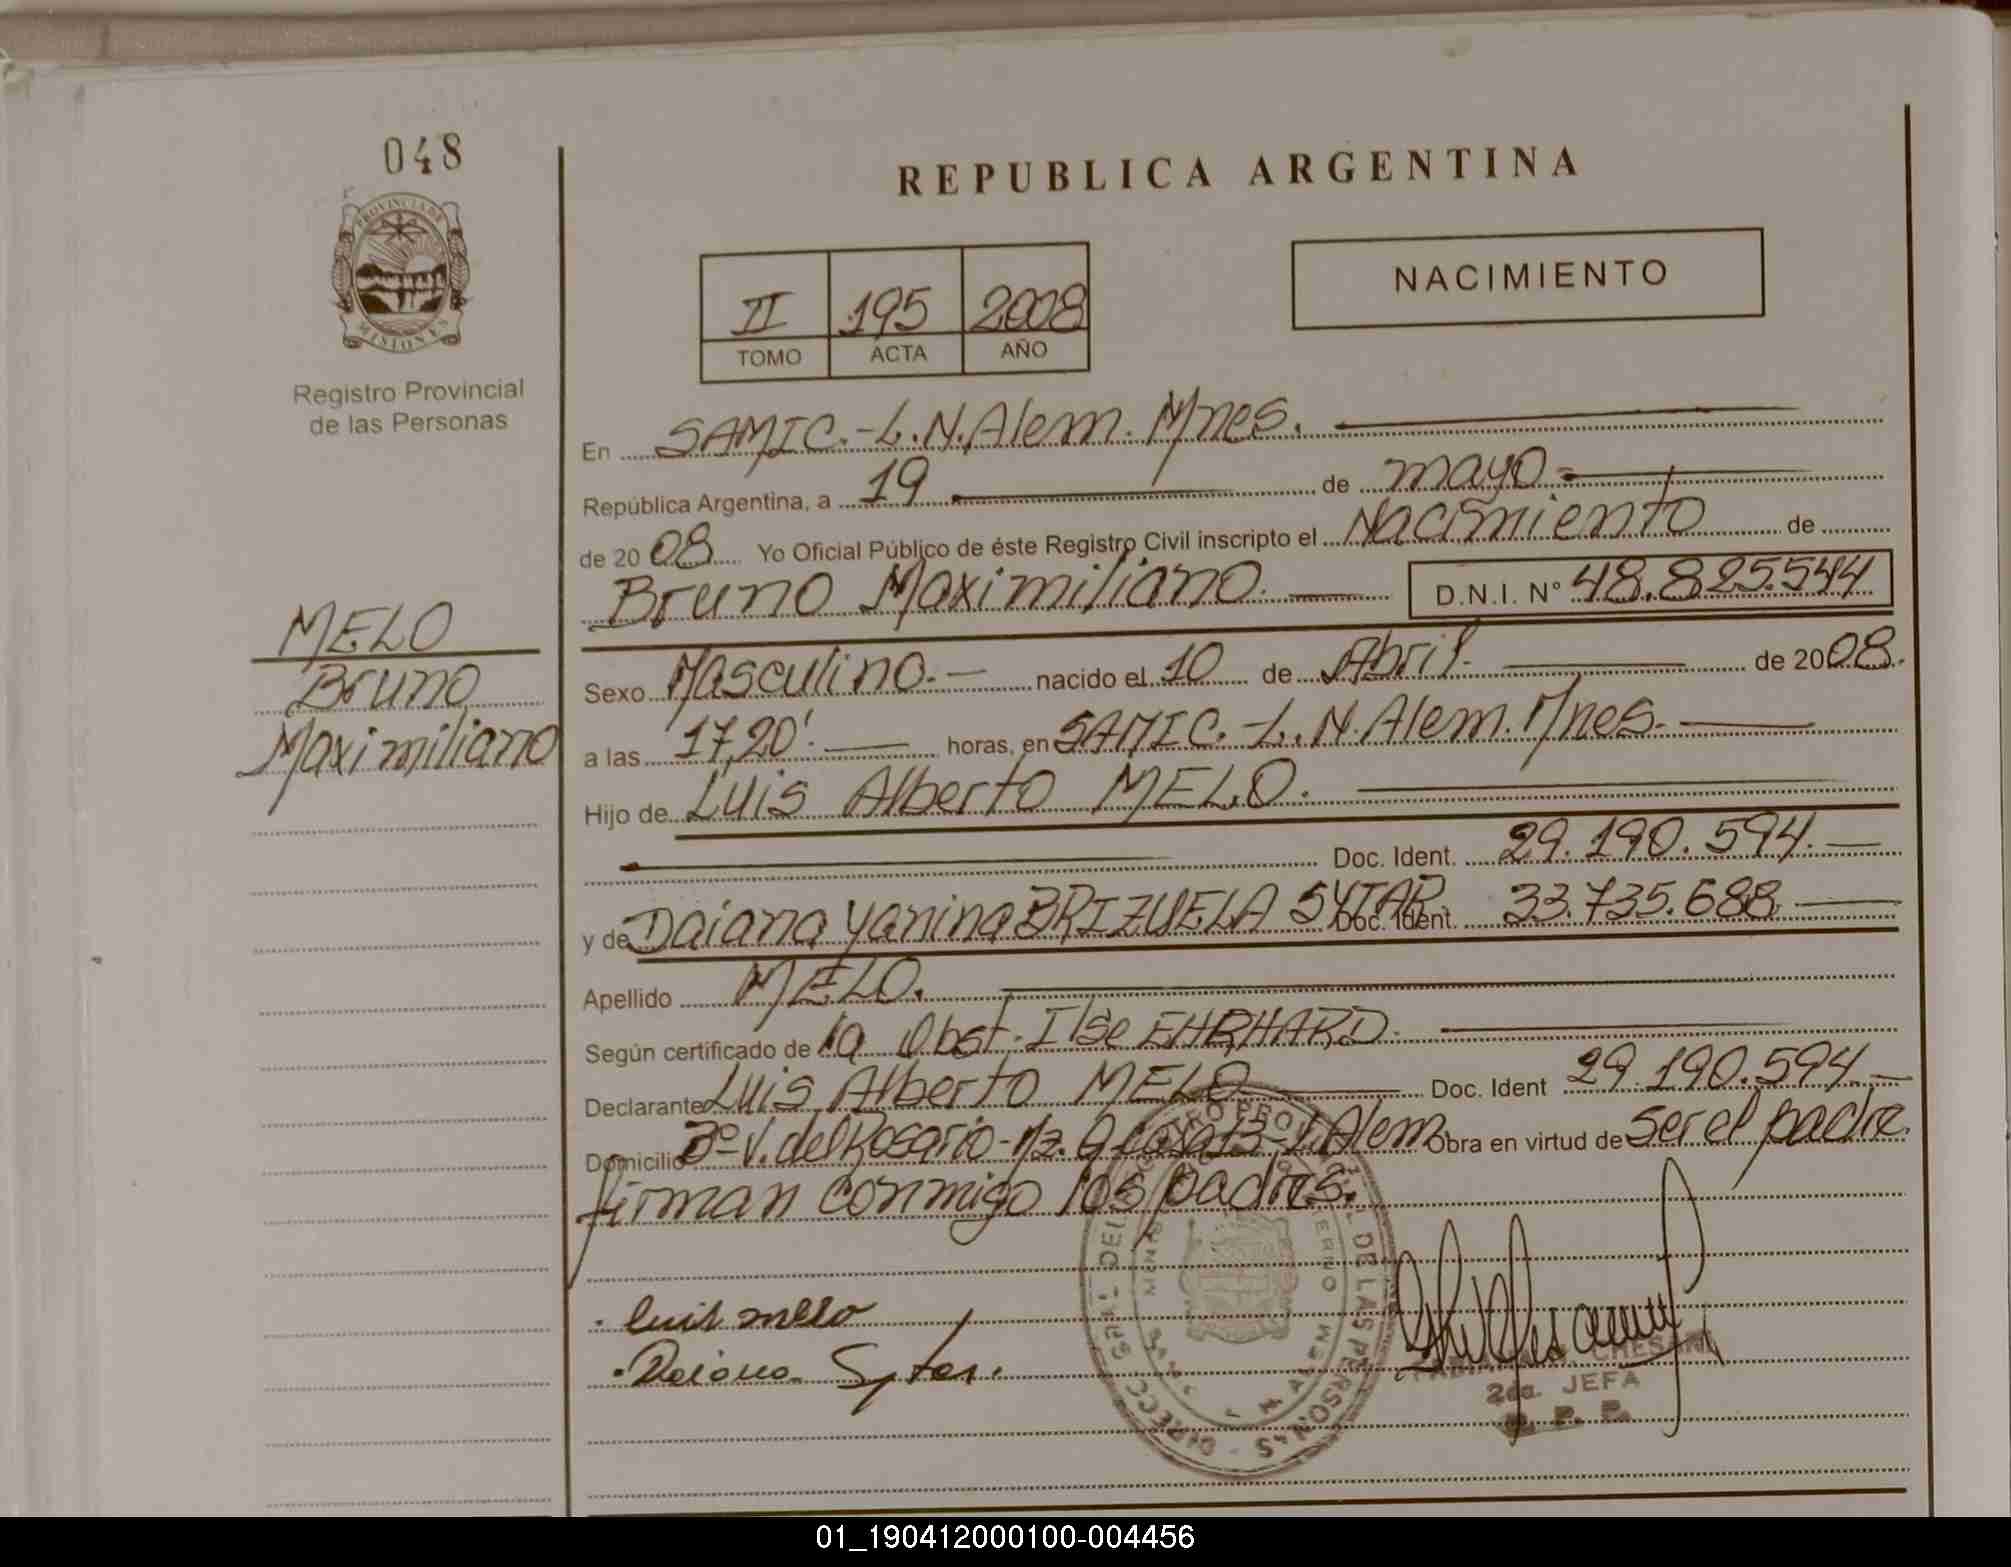 048
PROVINCIA DE
MISIONES
Registro Provincial
de las Personas
MELO
Bruno
Maximiliano
REPUBLICA ARGENTINA
II 195 2008
TOMO ACTA AÑO
NACIMIENTO
En SAMIC.-L.N.Alem. Mnes.
República Argentina, a 19 de mayo
de 2008 Yo Oficial Público de éste Registro Civil inscripto el Nacimiento de
Bruno Maximiliano. D.N.I. Nº 48.825.544
Sexo Masculino.- nacido el 10 de Abril. de 2008.
a las 17,20'. horas, en SAMIC.-L.N.Alem.Mnes.
Hijo de Luis Alberto MELO.
Doc. Ident. 29.190.594.
y de Daiana Yanina BRIZUELA SYTAR Doc. Ident. 33.735.688
Apellido MELO.
Según certificado de la Obst. Ilse EHRHARD.
Declarante Luis Alberto MELO Doc. Ident 29.190.594
Domicilio Bº V. del Rosario - Mz. casa L. Alem Obra en virtud de ser el padre.
firman conmigo los padres.
luis mello
Daiana Sytar.
2da. JEFA
R. P. P.
01_190412000100-004456